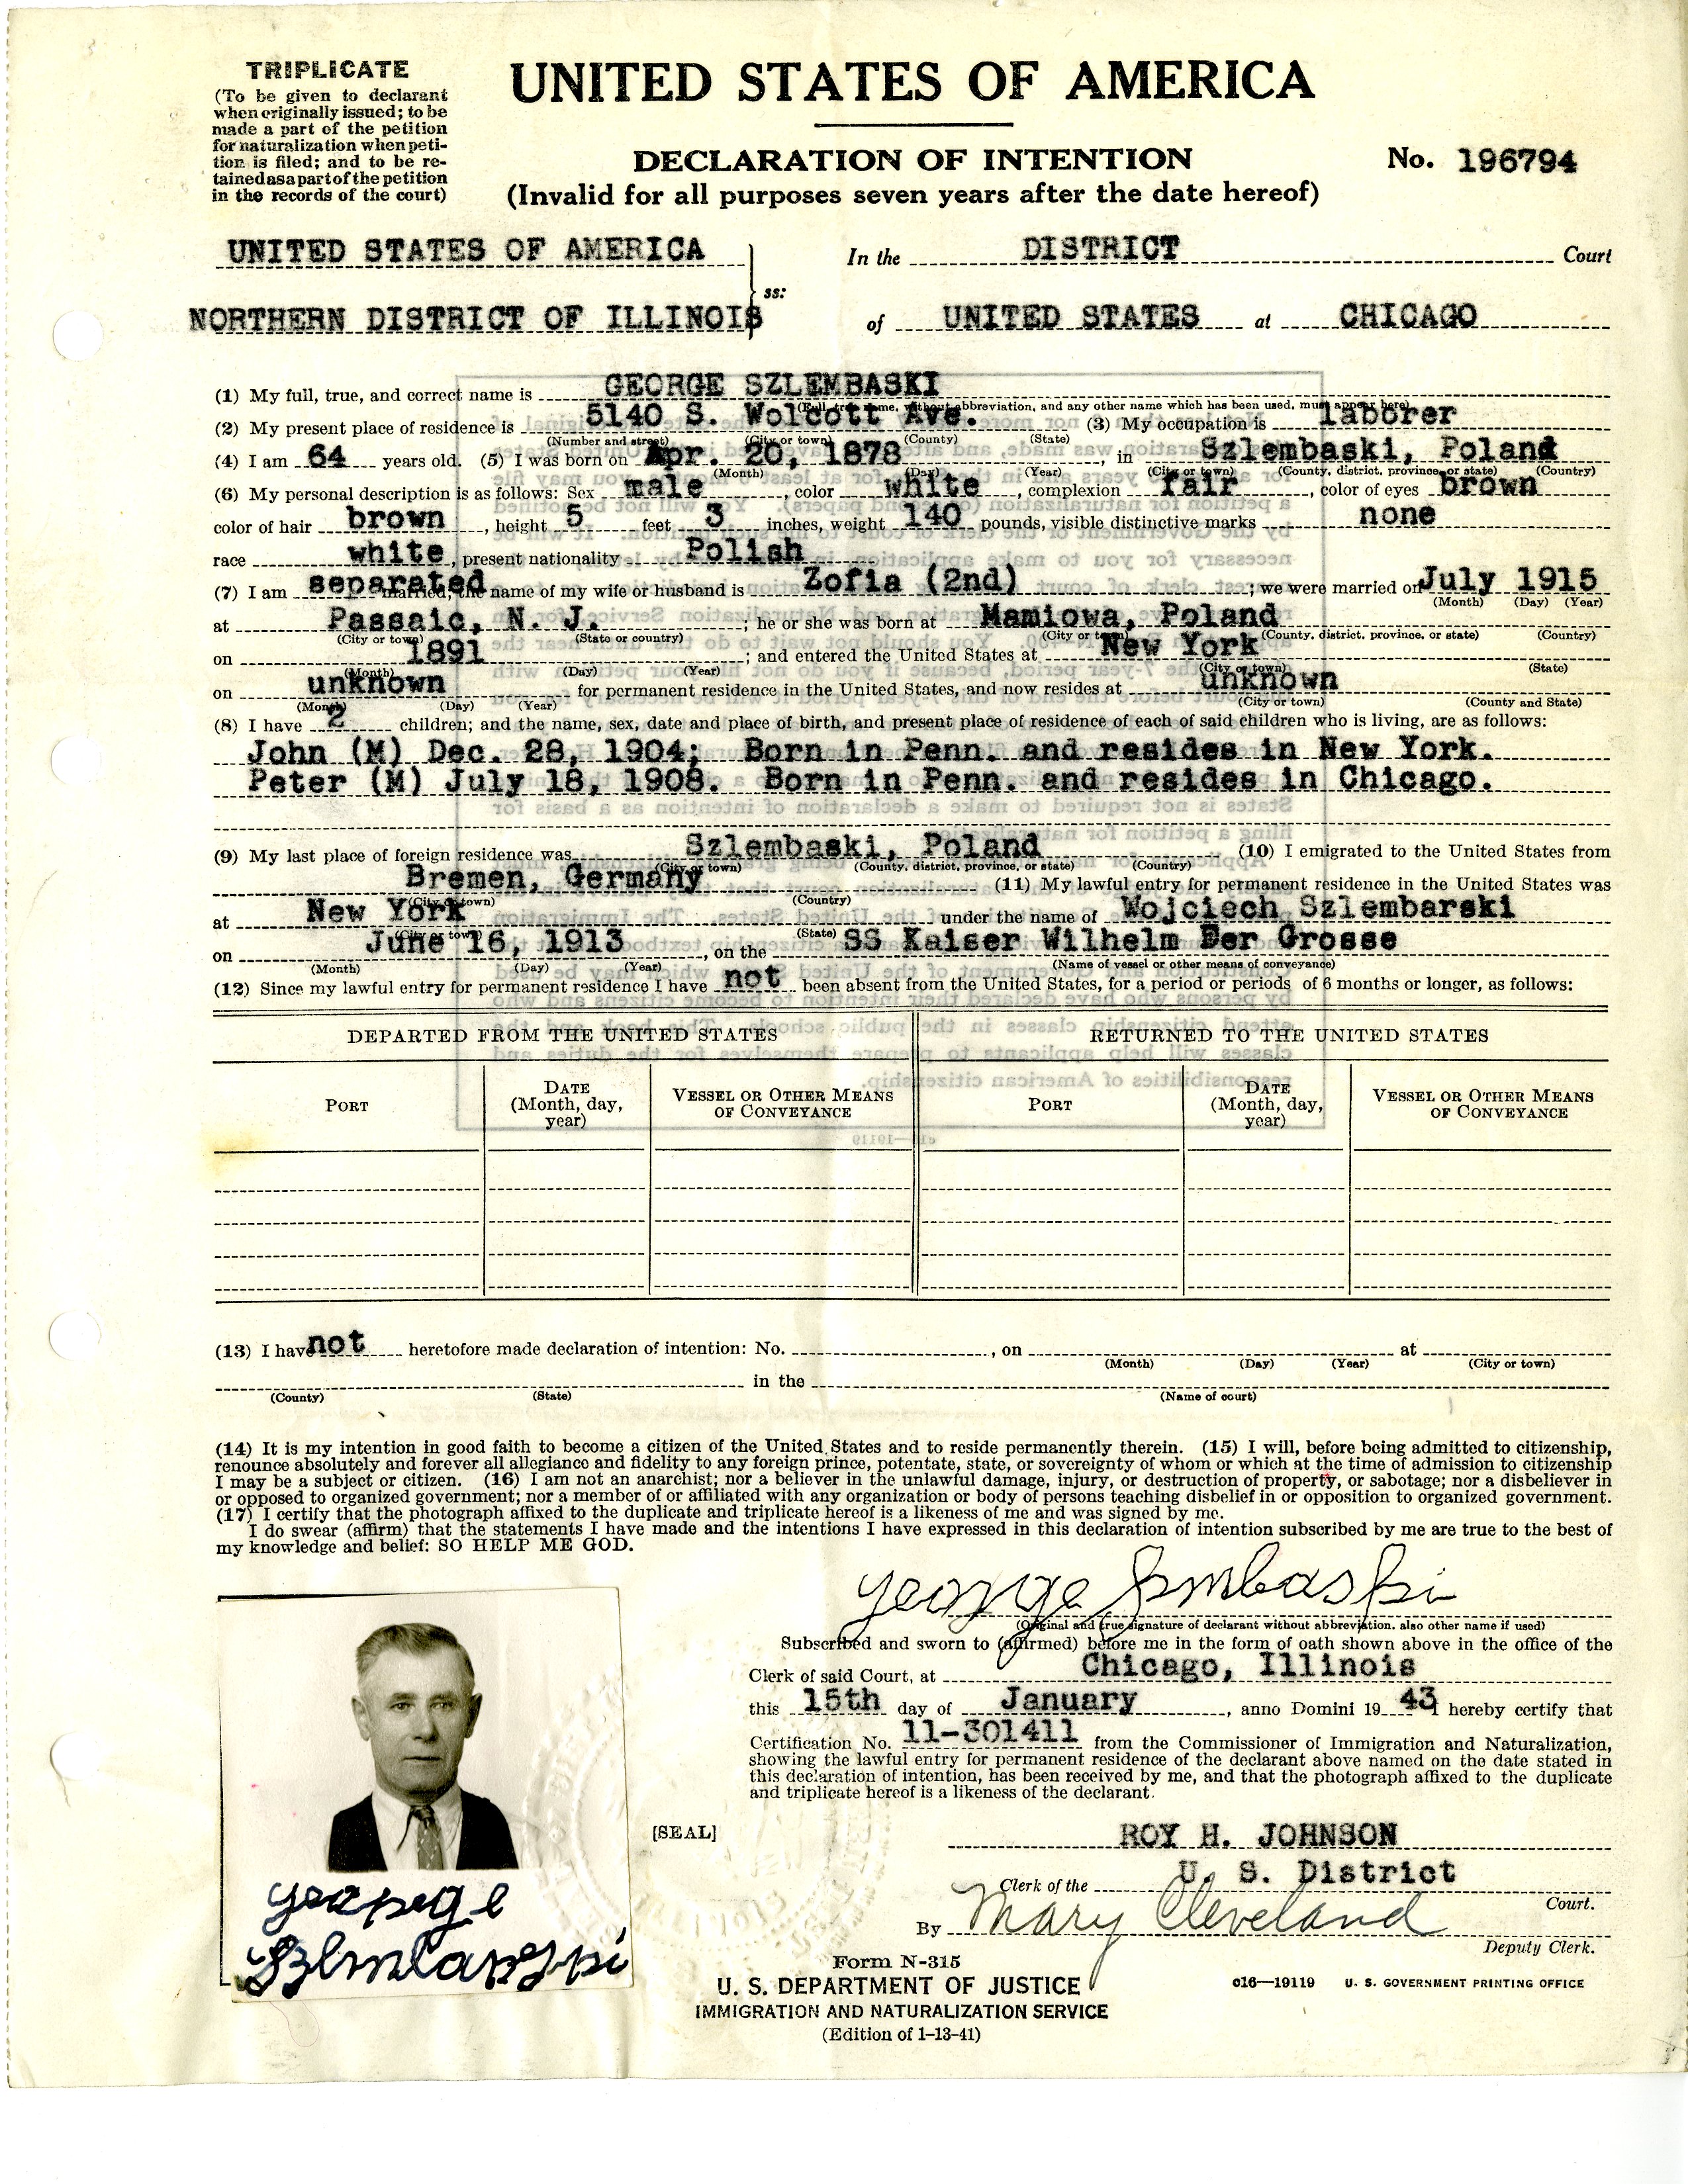 TRIPLICATE
(To be given to declarant
when originally issued; to be
made a part of the petition
for naturalization when peti-
tion is filed; and to be re-
tained as a part of the petition
in the records of the court)
UNITED STATES OF AMERICA
DECLARATION OF INTENTION
(Invalid for all purposes seven years after the date hereof)
No. 196794
UNITED STATES OF AMERICA
NORTHERN DISTRICT OF ILLINOIS
ss:
In the DISTRICT Court
of UNITED STATES at CHICAGO
(1) My full, true, and correct name is GEORGE SZLEMBASKI
(Full, true name, without abbreviation, and any other name which has been used, must appear here)
(2) My present place of residence is 5140 S. Wolcott Ave. (3) My occupation is laborer
(Number and street) (City or town) (County) (State)
(4) I am 64 years old. (5) I was born on Apr. 20, 1878, in Szlembaski, Poland
(Month) (Day) (Year) (City or town) (County, district, province, or state) (Country)
(6) My personal description is as follows: Sex male, color white, complexion fair, color of eyes brown
color of hair brown, height 5 feet 3 inches, weight 140 pounds, visible distinctive marks none
race white, present nationality Polish
(7) I am separated married; the name of my wife or husband is Zofia (2nd); we were married on July 1915
(Month) (Day) (Year)
at Passaic, N. J.; he or she was born at Mamiowa, Poland
(City or town) (State or country) (City or town) (County, district, province, or state) (Country)
on 1891; and entered the United States at New York
(Month) (Day) (Year) (City or town) (State)
on unknown for permanent residence in the United States, and now resides at unknown
(Month) (Day) (Year) (City or town) (County and State)
(8) I have 2 children; and the name, sex, date and place of birth, and present place of residence of each of said children who is living, are as follows:
John (M) Dec. 28, 1904; Born in Penn. and resides in New York.
Peter (M) July 18, 1908. Born in Penn. and resides in Chicago.
(9) My last place of foreign residence was Szlembaski, Poland (10) I emigrated to the United States from
(City or town) (County, district, province, or state) (Country)
Bremen, Germany (11) My lawful entry for permanent residence in the United States was
(City or town) (Country)
at New York under the name of Wojciech Szlembarski
(City or town) (State)
on June 16, 1913, on the SS Kaiser Wilhelm Der Grosse
(Month) (Day) (Year) (Name of vessel or other means of conveyance)
(12) Since my lawful entry for permanent residence I have not been absent from the United States, for a period or periods of 6 months or longer, as follows:
DEPARTED FROM THE UNITED STATES RETURNED TO THE UNITED STATES
PORT DATE (Month, day, year) VESSEL OR OTHER MEANS OF CONVEYANCE PORT DATE (Month, day, year) VESSEL OR OTHER MEANS OF CONVEYANCE
(13) I have not heretofore made declaration of intention: No. , on at
(Month) (Day) (Year) (City or town)
in the
(County) (State) (Name of court)
(14) It is my intention in good faith to become a citizen of the United States and to reside permanently therein. (15) I will, before being admitted to citizenship,
renounce absolutely and forever all allegiance and fidelity to any foreign prince, potentate, state, or sovereignty of whom or which at the time of admission to citizenship
I may be a subject or citizen. (16) I am not an anarchist; nor a believer in the unlawful damage, injury, or destruction of property, or sabotage; nor a disbeliever in
or opposed to organized government; nor a member of or affiliated with any organization or body of persons teaching disbelief in or opposition to organized government.
(17) I certify that the photograph affixed to the duplicate and triplicate hereof is a likeness of me and was signed by me.
I do swear (affirm) that the statements I have made and the intentions I have expressed in this declaration of intention subscribed by me are true to the best of
my knowledge and belief: SO HELP ME GOD.
George Smbaski
(Original and true signature of declarant without abbreviation, also other name if used)
Subscribed and sworn to (affirmed) before me in the form of oath shown above in the office of the
Clerk of said Court, at Chicago, Illinois
this 15th day of January, anno Domini 1943 I hereby certify that
Certification No. 11-301411 from the Commissioner of Immigration and Naturalization,
showing the lawful entry for permanent residence of the declarant above named on the date stated in
this declaration of intention, has been received by me, and that the photograph affixed to the duplicate
and triplicate hereof is a likeness of the declarant.
[SEAL]
ROY H. JOHNSON
Clerk of the U. S. District Court.
By Mary Cleveland
Deputy Clerk.
Form N-315
U. S. DEPARTMENT OF JUSTICE
IMMIGRATION AND NATURALIZATION SERVICE
(Edition of 1-13-41)
c16—19119 U. S. GOVERNMENT PRINTING OFFICE